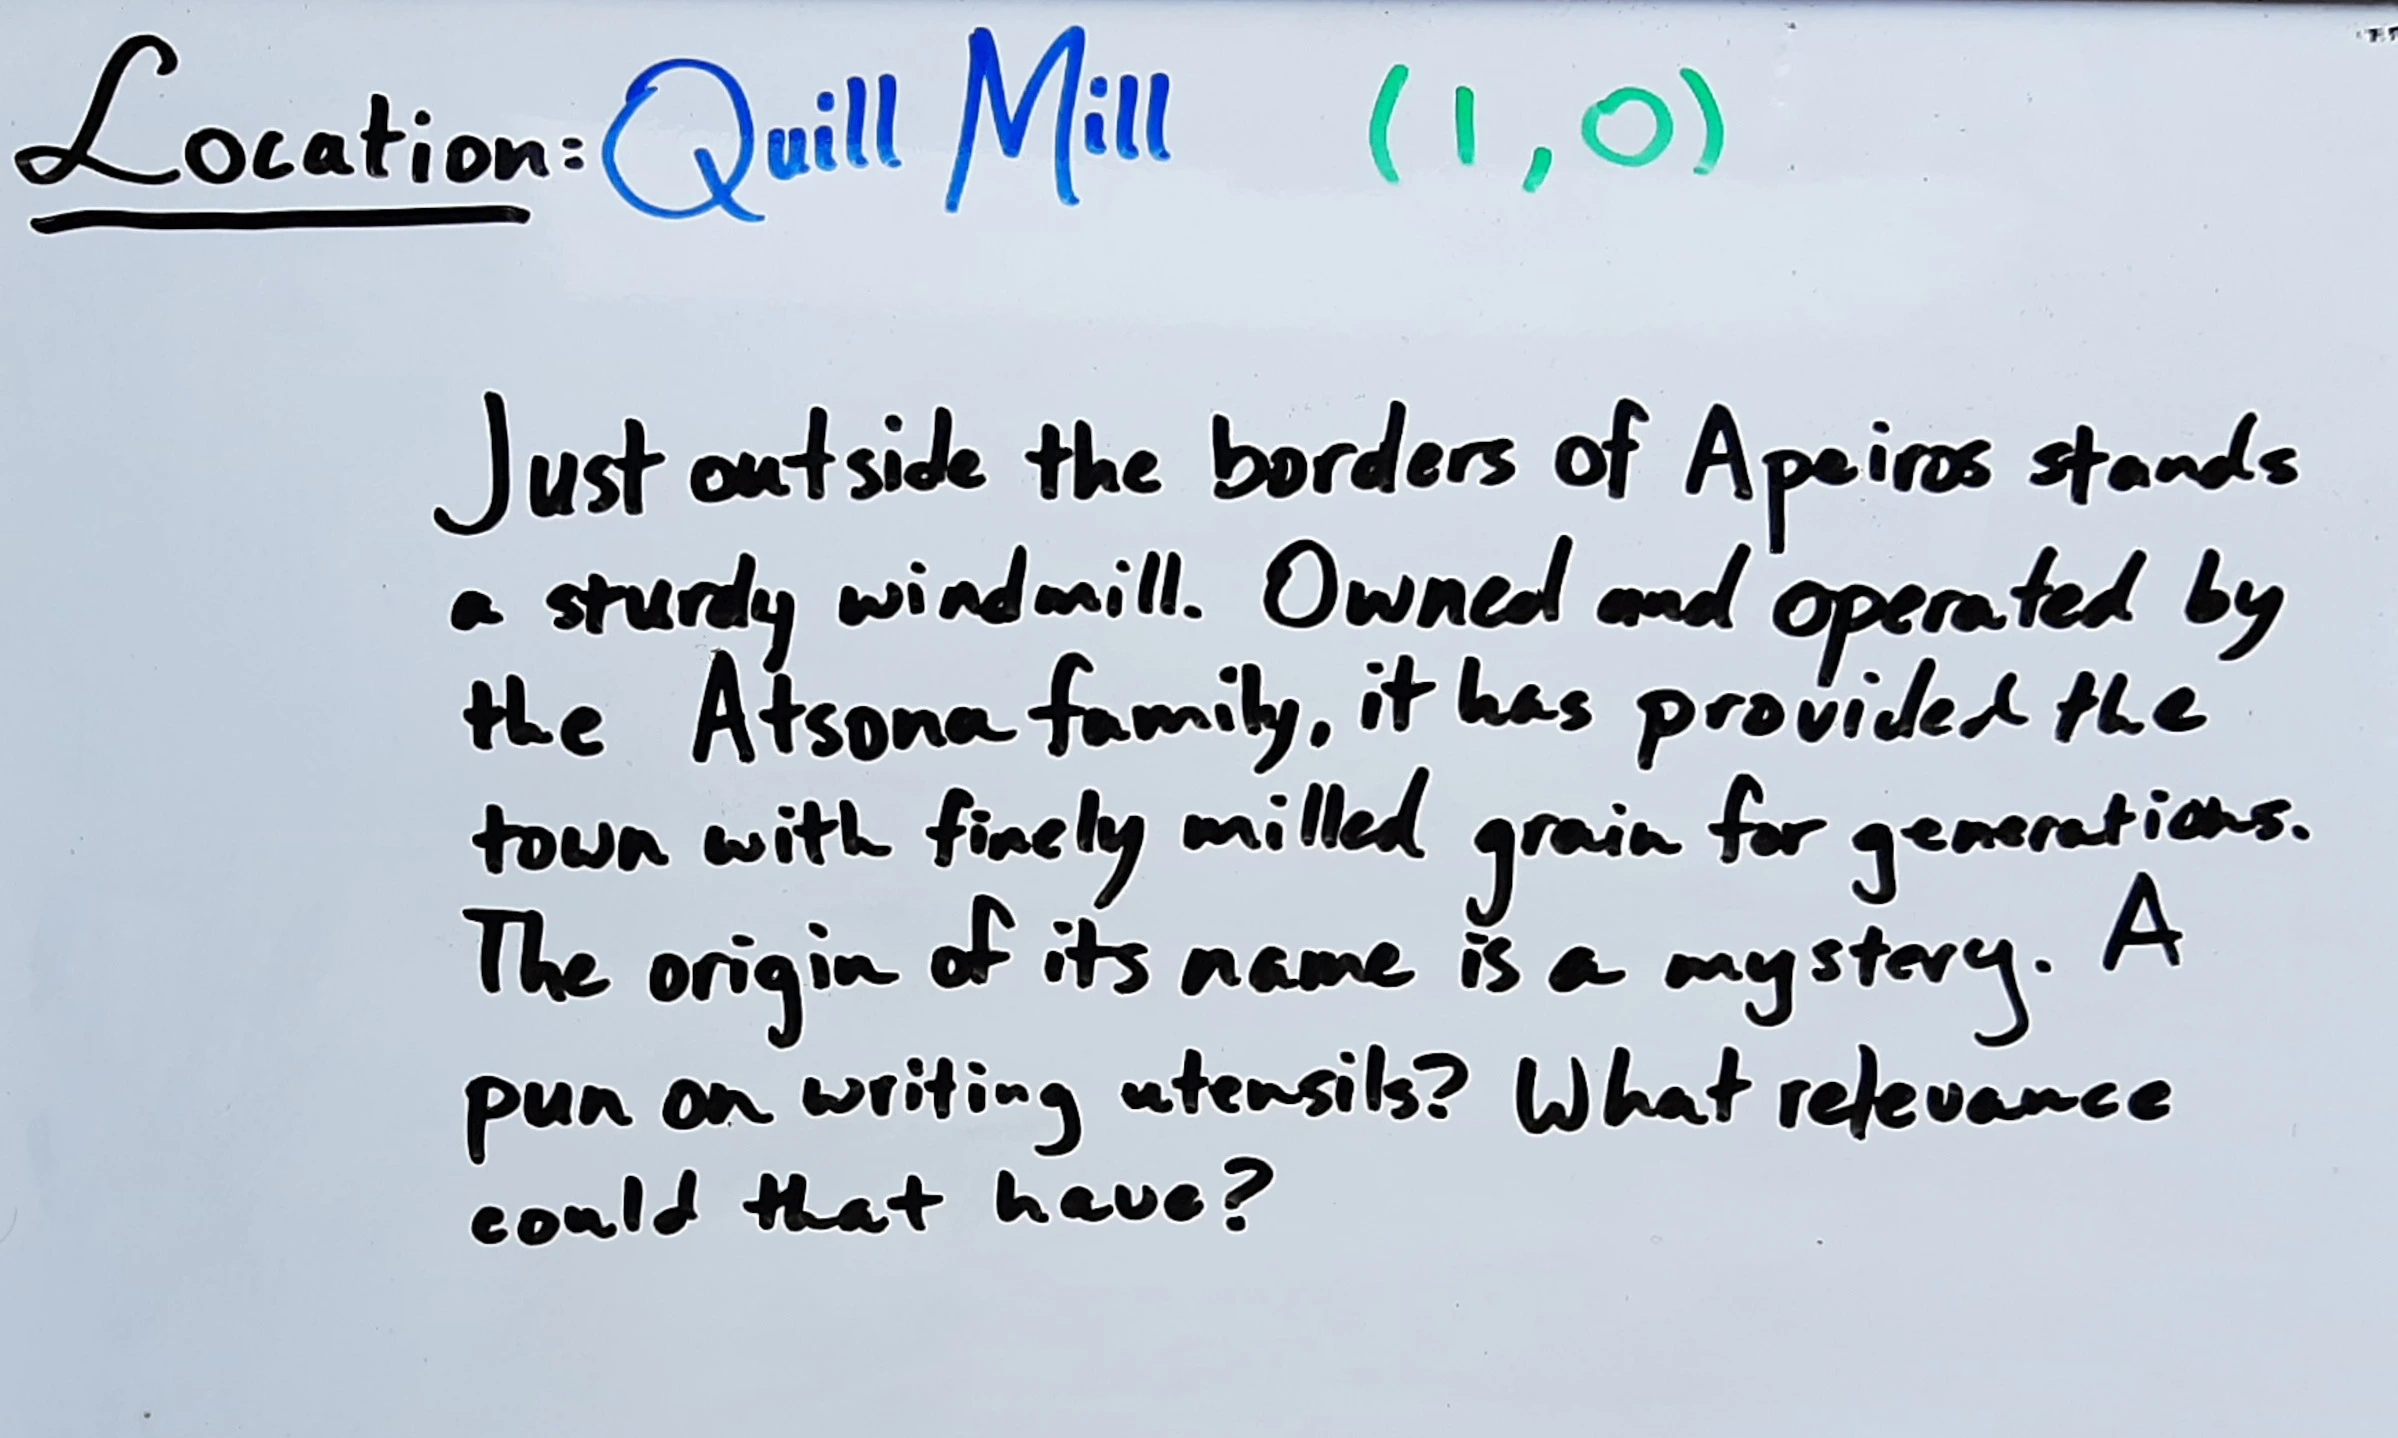 Location: Quill Mill (1,0)
Just outside the borders of Apeiros stands
a sturdy windmill. Owned and operated by
the Atsona family, it has provided the
town with finely milled grain for generations.
The origin of its name is a mystery. A
pun on writing utensils? What relevance
could that have?